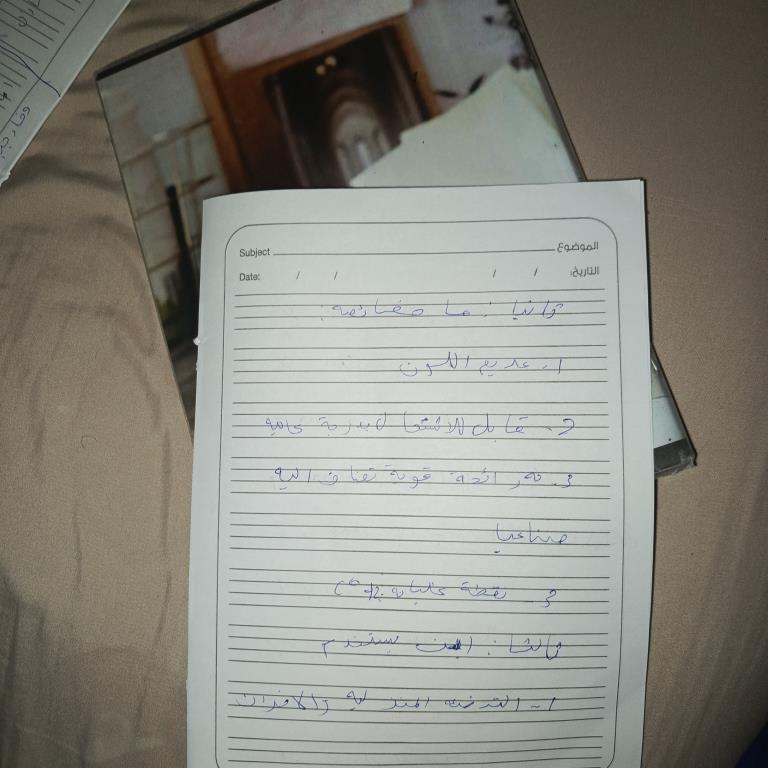 Subject الموضوع
Date: / / / / التاريخ:
ثانيا : ما خصائصه :
1- عديم اللون
2- قابل للاشتعال بدرجة عاليه
3- رائحة قوية تضاف اليه
صناعيا
3- نقطة غليانه
ثالثا : اين يستخدم
1- التدفئه المنزليه والافران